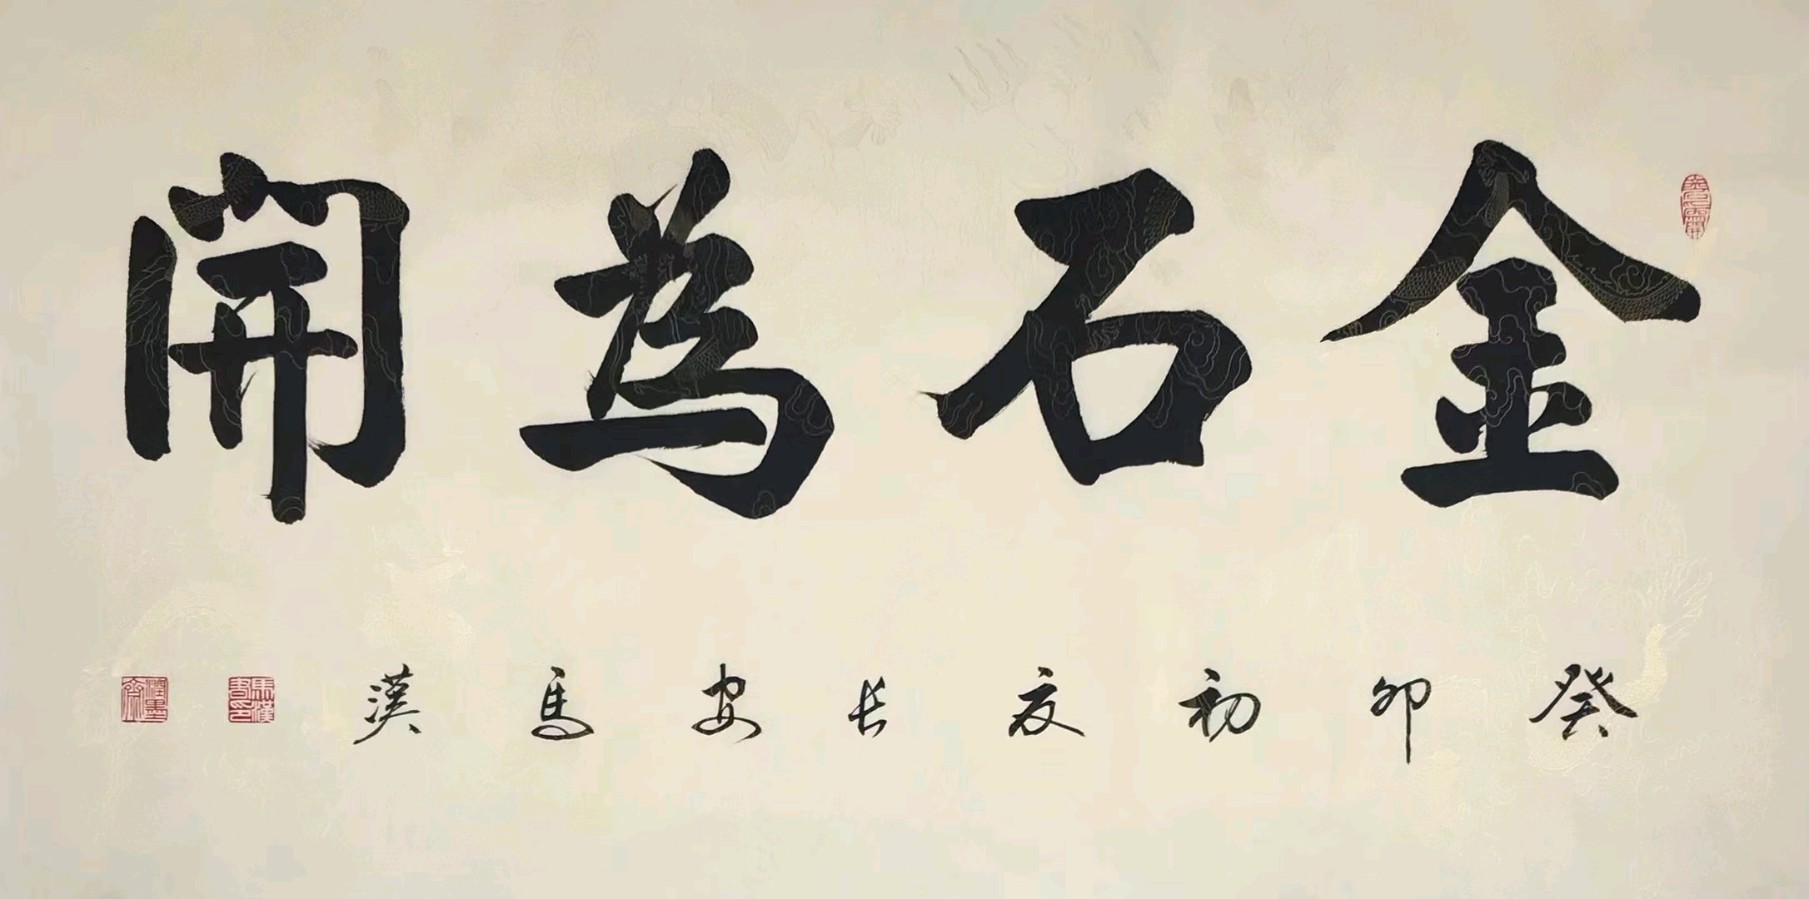 金石為開
癸卯初夏長安馬漢